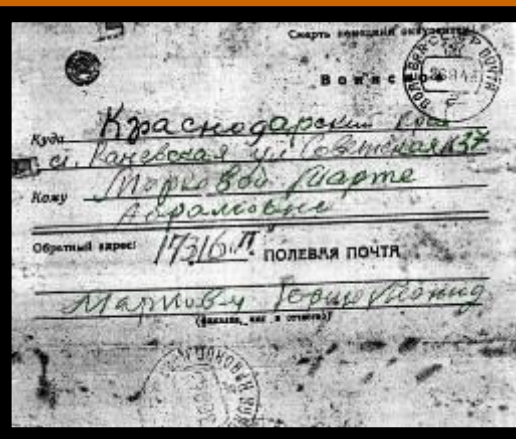 Смерть немецким оккупантам!
Воинское
Куда Краснодарский край
ст. Каневская ул Советская №37
Кому Марковой Марте
Абрамовне
Обратный адрес: 17316 П ПОЛЕВАЯ ПОЧТА
Маркову
(фамилия, имя и отчество)